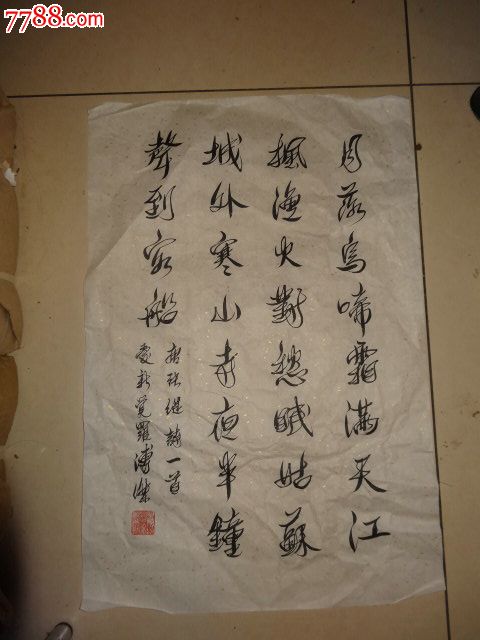 7788.com
月落烏啼霜滿天江
楓漁火對愁眠姑蘇
城外寒山寺夜半鐘
聲到客船
唐張繼詩一首
愛新覺羅溥傑